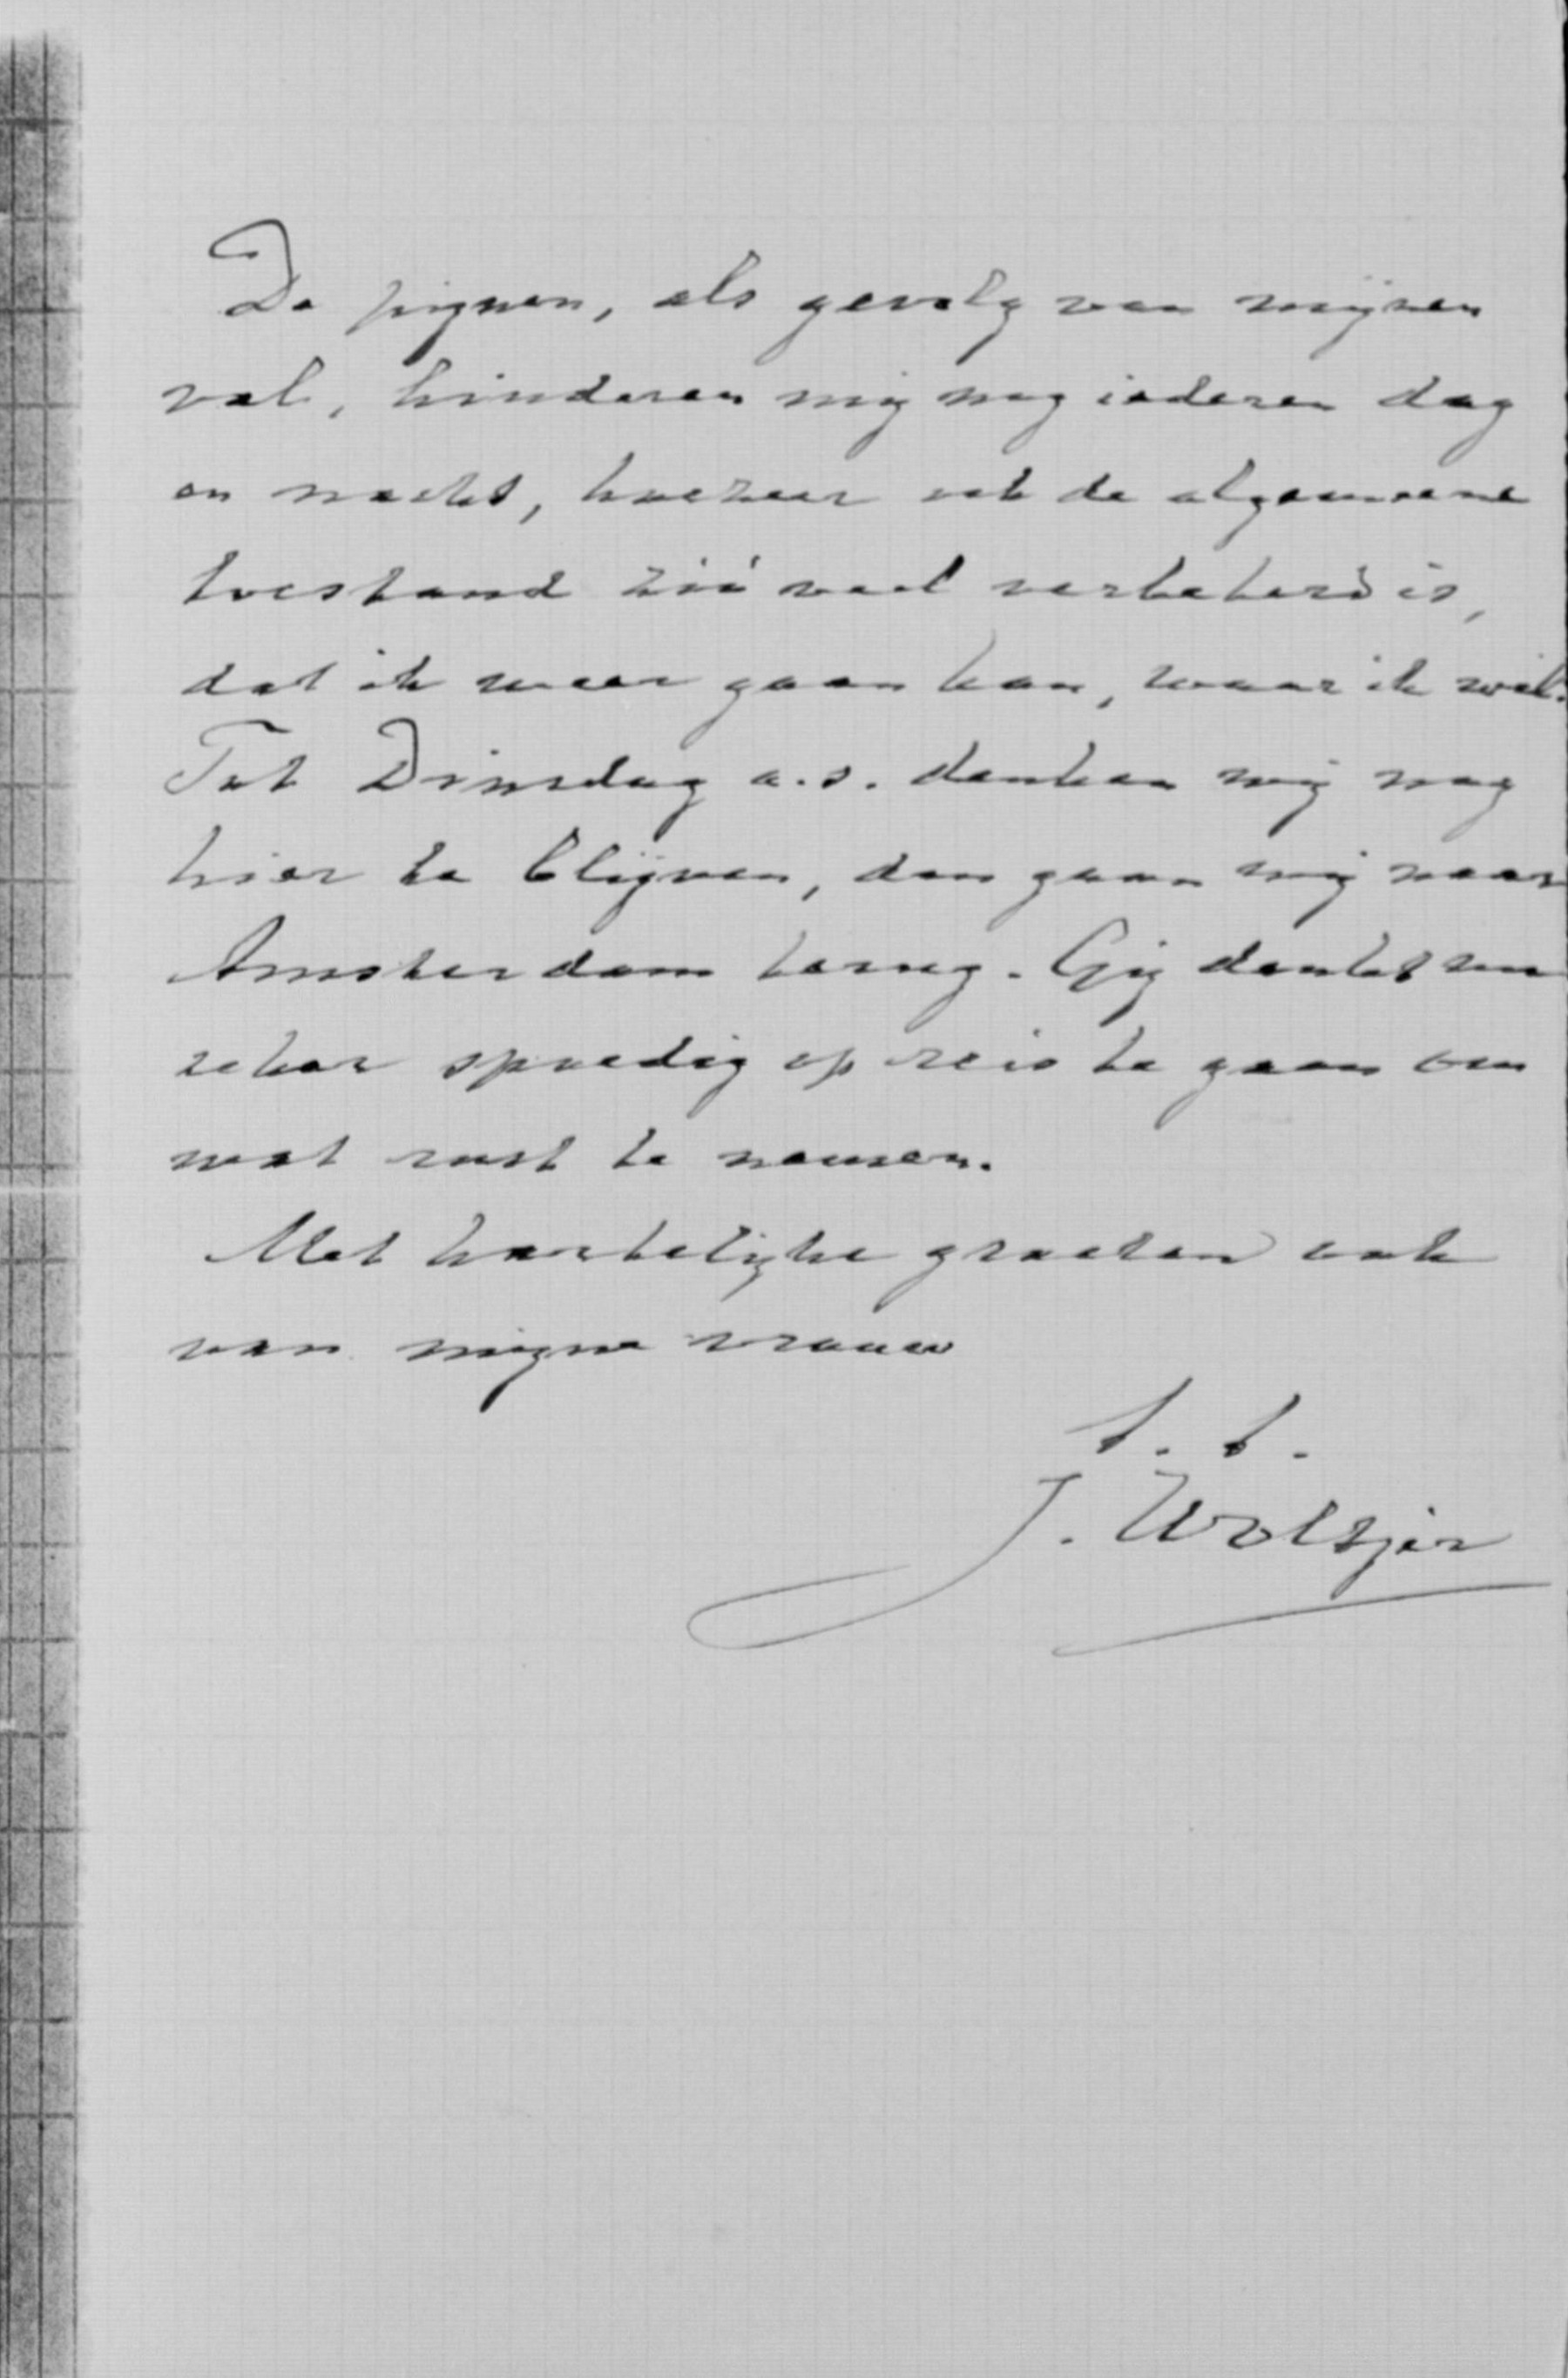 De pijnen, als gevolg van mijnen
val, hinderen mij nog iederen dag
en nacht, hoezeer ook de algemeene
toestand zóó veel verbeterd is,
dat ik weer gaan kan, waar ik wil.
Tot Dinsdag a.s. denken wij nog
hier te blijven, dan gaan wij naar
Amsterdam terug. Gij denkt nu
zeker spoedig op reis te gaan om
wat rust te nemen.
Met hartelijke groeten ook
van mijne vrouw
t. t.
J. Woltjer